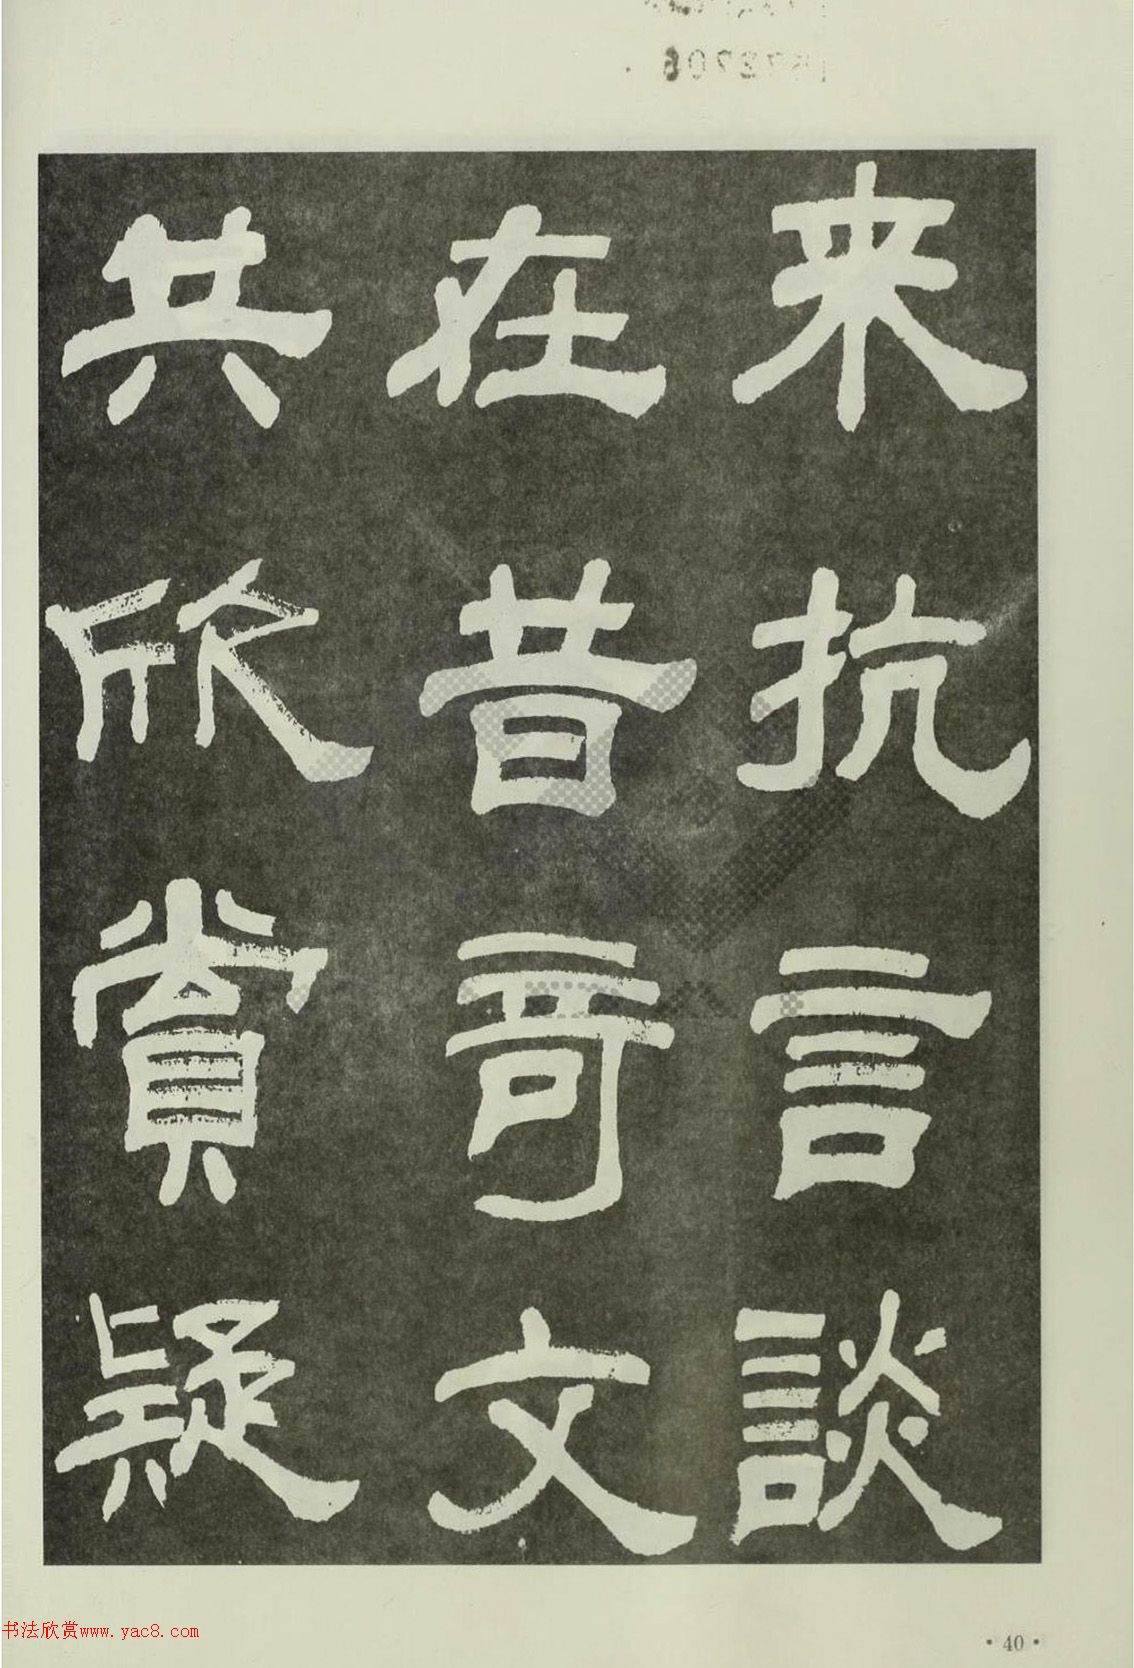 来抗言談
在昔奇文
共欣賞疑
·40·
书法欣赏www.yac8.com